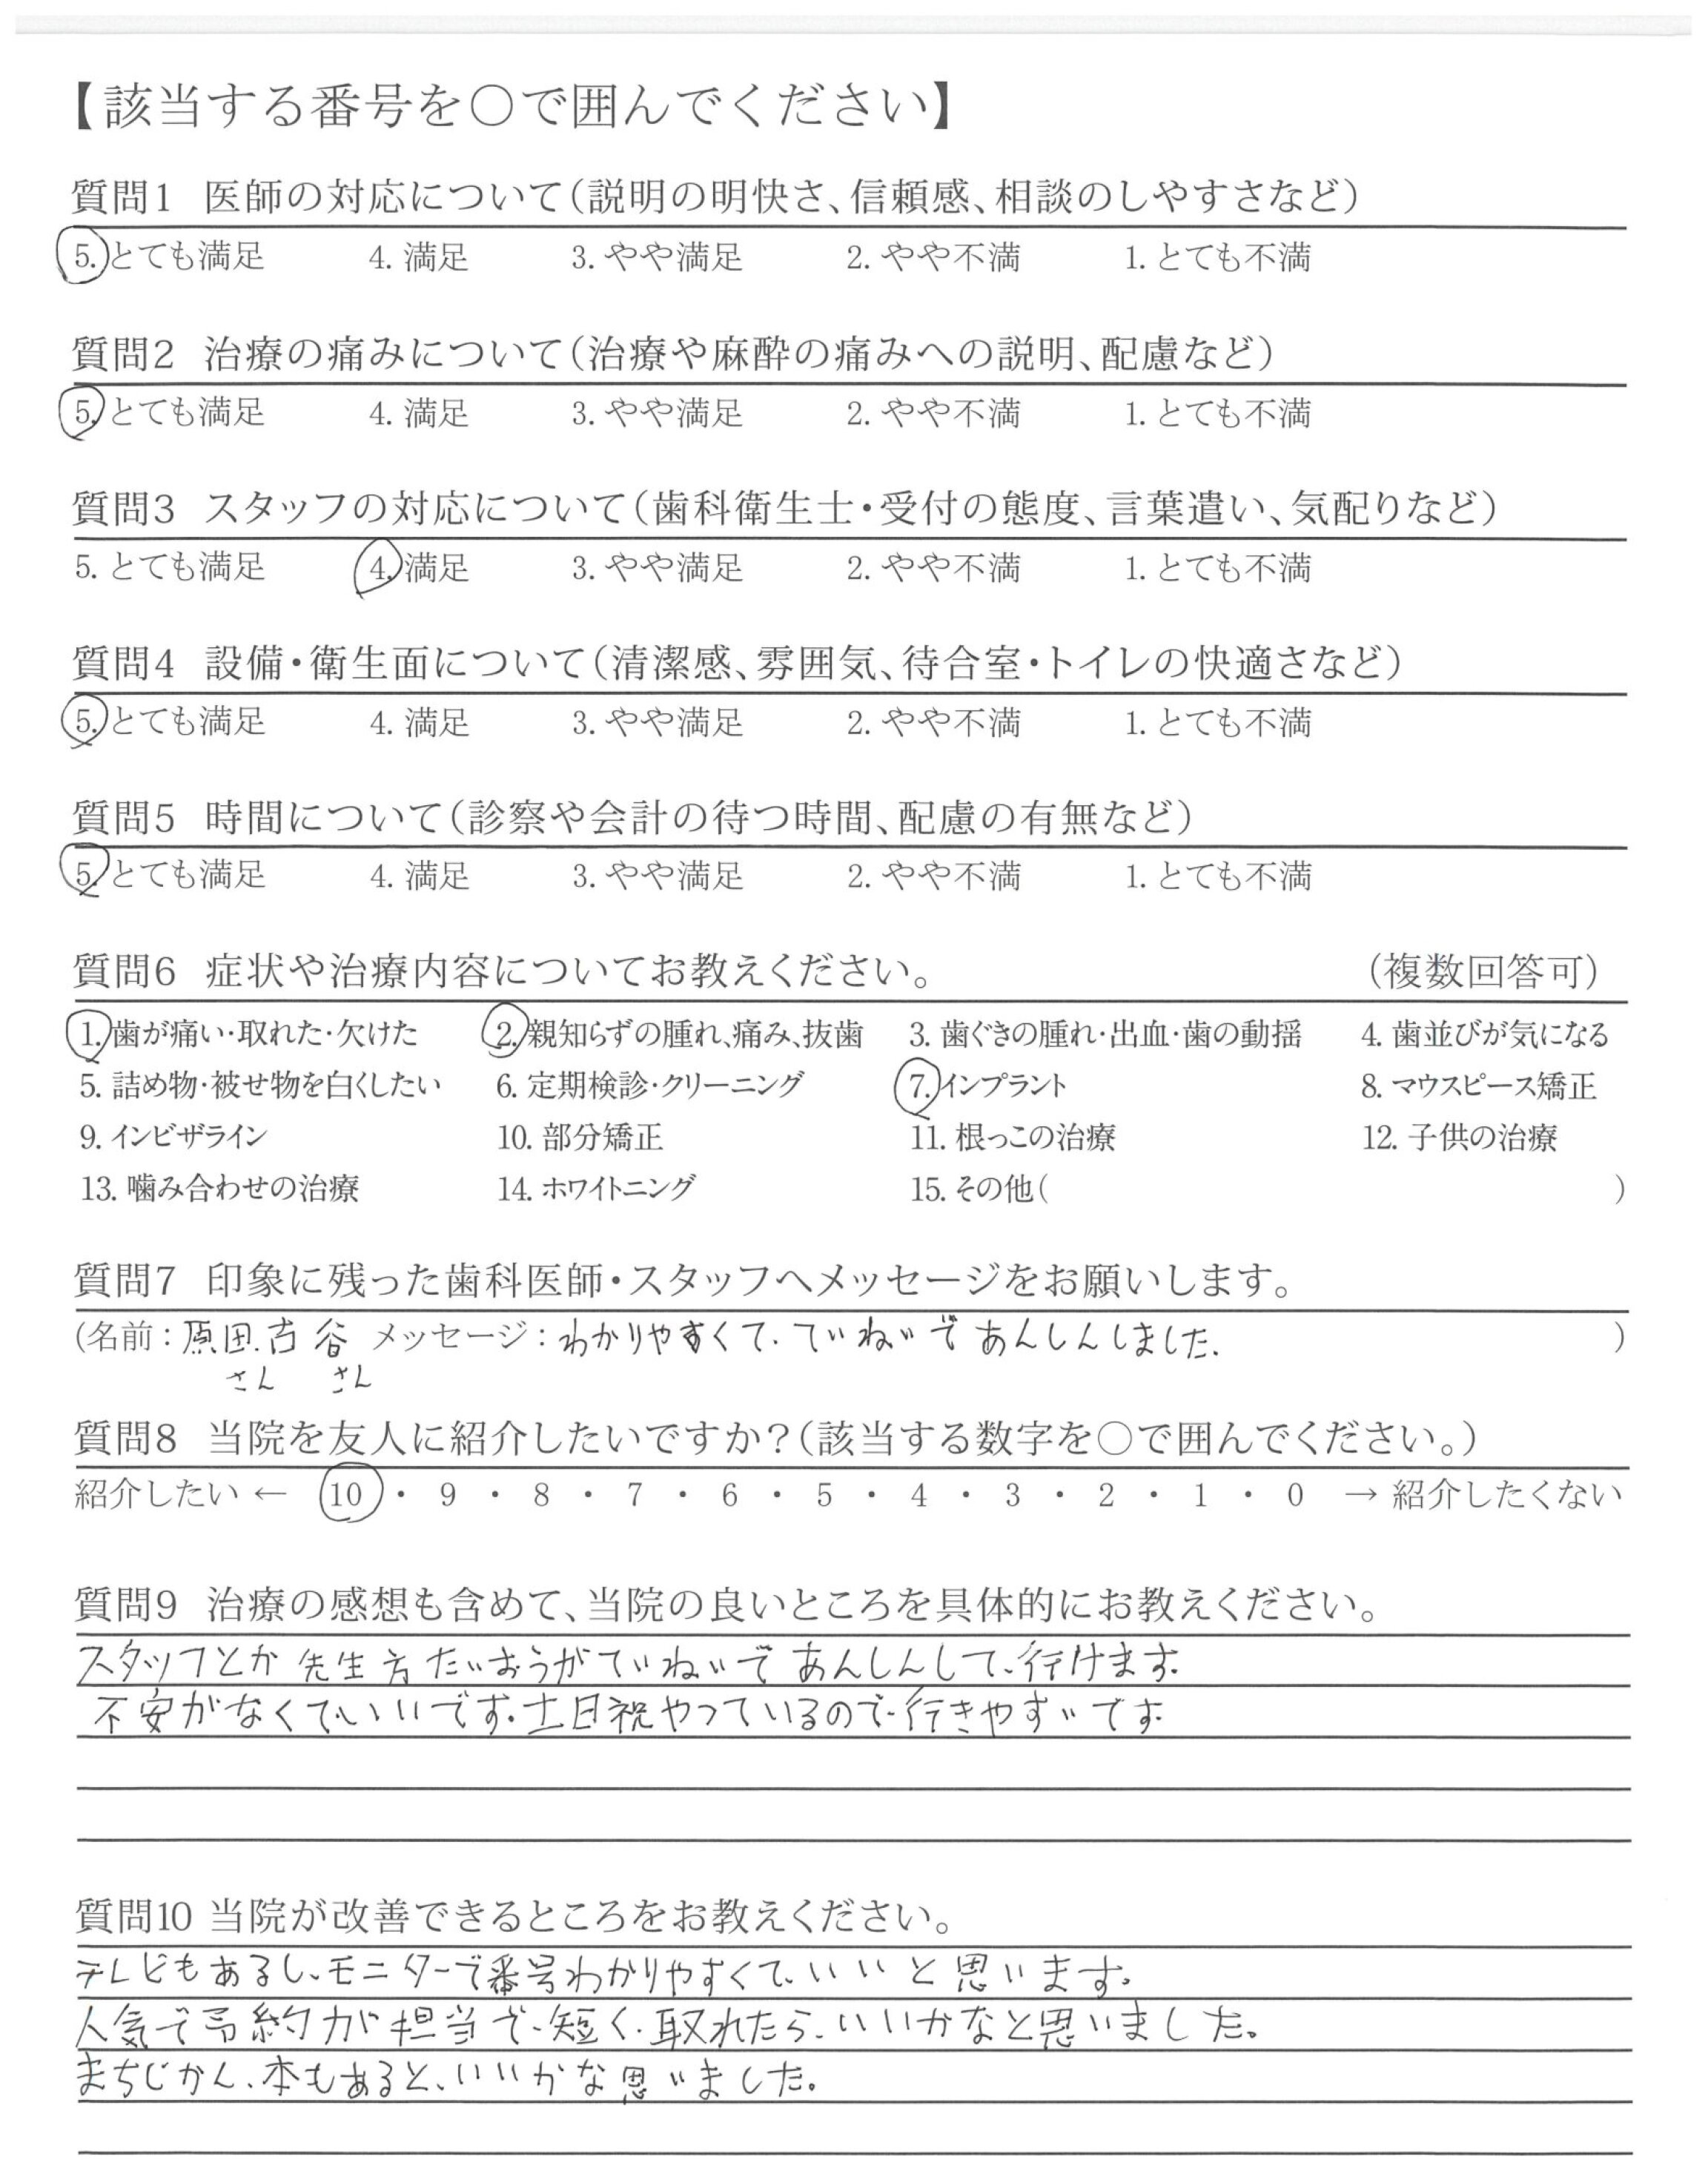 【該当する番号を○で囲んでください】
質問1 医師の対応について(説明の明快さ、信頼感、相談のしやすさなど)
5. とても満足 4. 満足 3. やや満足 2. やや不満 1. とても不満
質問2 治療の痛みについて(治療や麻酔の痛みへの説明、配慮など)
5. とても満足 4. 満足 3. やや満足 2. やや不満 1. とても不満
質問3 スタッフの対応について(歯科衛生士・受付の態度、言葉遣い、気配りなど)
5. とても満足 4. 満足 3. やや満足 2. やや不満 1. とても不満
質問4 設備・衛生面について(清潔感、雰囲気、待合室・トイレの快適さなど)
5. とても満足 4. 満足 3. やや満足 2. やや不満 1. とても不満
質問5 時間について(診察や会計の待つ時間、配慮の有無など)
5. とても満足 4. 満足 3. やや満足 2. やや不満 1. とても不満
質問6 症状や治療内容についてお教えください。 (複数回答可)
1. 歯が痛い・取れた・欠けた 2. 親知らずの腫れ、痛み、抜歯 3. 歯ぐきの腫れ・出血・歯の動揺 4. 歯並びが気になる
5. 詰め物・被せ物を白くしたい 6. 定期検診・クリーニング 7. インプラント 8. マウスピース矯正
9. インビザライン 10. 部分矯正 11. 根っこの治療 12. 子供の治療
13. 噛み合わせの治療 14. ホワイトニング 15. その他( )
質問7 印象に残った歯科医師・スタッフへメッセージをお願いします。
(名前：原田.古谷 メッセージ：わかりやすくて.ていねいであんしんしました. )
さん さん
質問8 当院を友人に紹介したいですか？(該当する数字を○で囲んでください。)
紹介したい ← 10 ・ 9 ・ 8 ・ 7 ・ 6 ・ 5 ・ 4 ・ 3 ・ 2 ・ 1 ・ 0 → 紹介したくない
質問9 治療の感想も含めて、当院の良いところを具体的にお教えください。
スタッフとか先生方たいおうがていねいであんしんして、行けます.
不安がなくて、いいです.土日祝やっているので、行きやすいです.
質問10 当院が改善できるところをお教えください。
テレビもあるし、モニターで番号わかりやすくて、いいと思います.
人気で予約が担当で、短く、取れたら、いいかなと思いました。
まちじかん、本もあると、いいかな思いました.